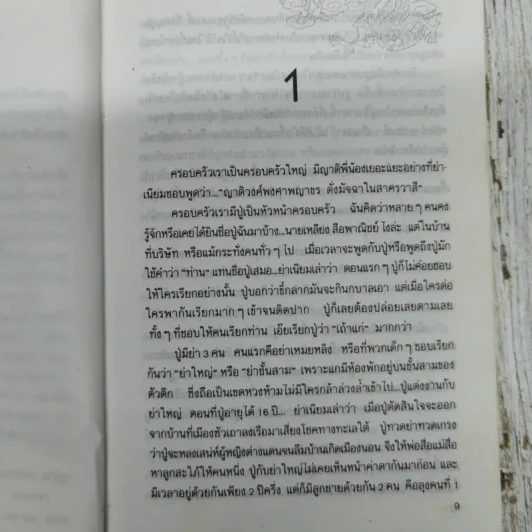 1
ครอบครัวเราเป็นครอบครัวใหญ่ มีญาติพี่น้องเยอะแยะอย่างที่ย่า-
เนียมชอบพูดว่า..."ญาติวงศ์พงศาพญาขร ดั่งมัจฉาในสาครวารี"
ครอบครัวเรามีปู่เป็นหัวหน้าครอบครัว ฉันคิดว่าหลาย ๆ คนคง
รู้จักหรือเคยได้ยินชื่อปู่ฉันมาบ้าง...นายเหลียง สือพาณิชย์ ไงล่ะ แต่ในบ้าน
ที่บริษัท หรือแม้กระทั่งคนทั่ว ๆ ไป เมื่อเวลาจะพูดกับปู่หรือพูดถึงปู่มัก
ใช้คำว่า "ท่าน" แทนชื่อปู่เสมอ...ย่าเนียมเล่าว่า ตอนแรก ๆ ปู่ก็ไม่ค่อยชอบ
ให้ใครเรียกอย่างนั้น ปู่บอกว่าขี้กลากมันจะกินกบาลเอา แต่เมื่อใครต่อ
ใครพากันเรียกมาก ๆ เข้าจนติดปาก ปู่ก็เลยต้องปล่อยเลยตามเลย
ทั้ง ๆ ที่ชอบให้คนเรียกท่าน เอ๊ยเรียกปู่ว่า "เถ้าแก่" มากกว่า
ปู่มีย่า 3 คน คนแรกคือย่าเหมยหลิง หรือที่พวกเด็ก ๆ ชอบเรียก
กันว่า "ย่าใหญ่" หรือ "ย่าชั้นสาม" เพราะแกมีห้องพักอยู่บนชั้นสามของ
ตัวตึก ซึ่งถือเป็นเขตหวงห้ามไม่มีใครกล้าล่วงล้ำเข้าไป...ปู่แต่งงานกับ
ย่าใหญ่ ตอนที่ปู่อายุได้ 16 ปี... ย่าเนียมเล่าว่า เมื่อปู่ตัดสินใจจะออก
จากบ้านที่เมืองซัวเถาลงเรือมาเสี่ยงโชคทางทะเลใต้ ปู่ทวดย่าทวดเกรง
ว่าปู่จะหลงเสน่ห์ผู้หญิงต่างแดนจนลืมบ้านเกิดเมืองนอน จึงให้พ่อสื่อแม่สื่อ
หาลูกสะใภ้ให้คนหนึ่ง ปู่กับย่าใหญ่ไม่เคยเห็นหน้าค่าตากันมาก่อน และ
มีเวลาอยู่ด้วยกันเพียง 2 ปีครึ่ง แต่ก็มีลูกชายด้วยกัน 2 คน คือลุงคนที่ 1
9